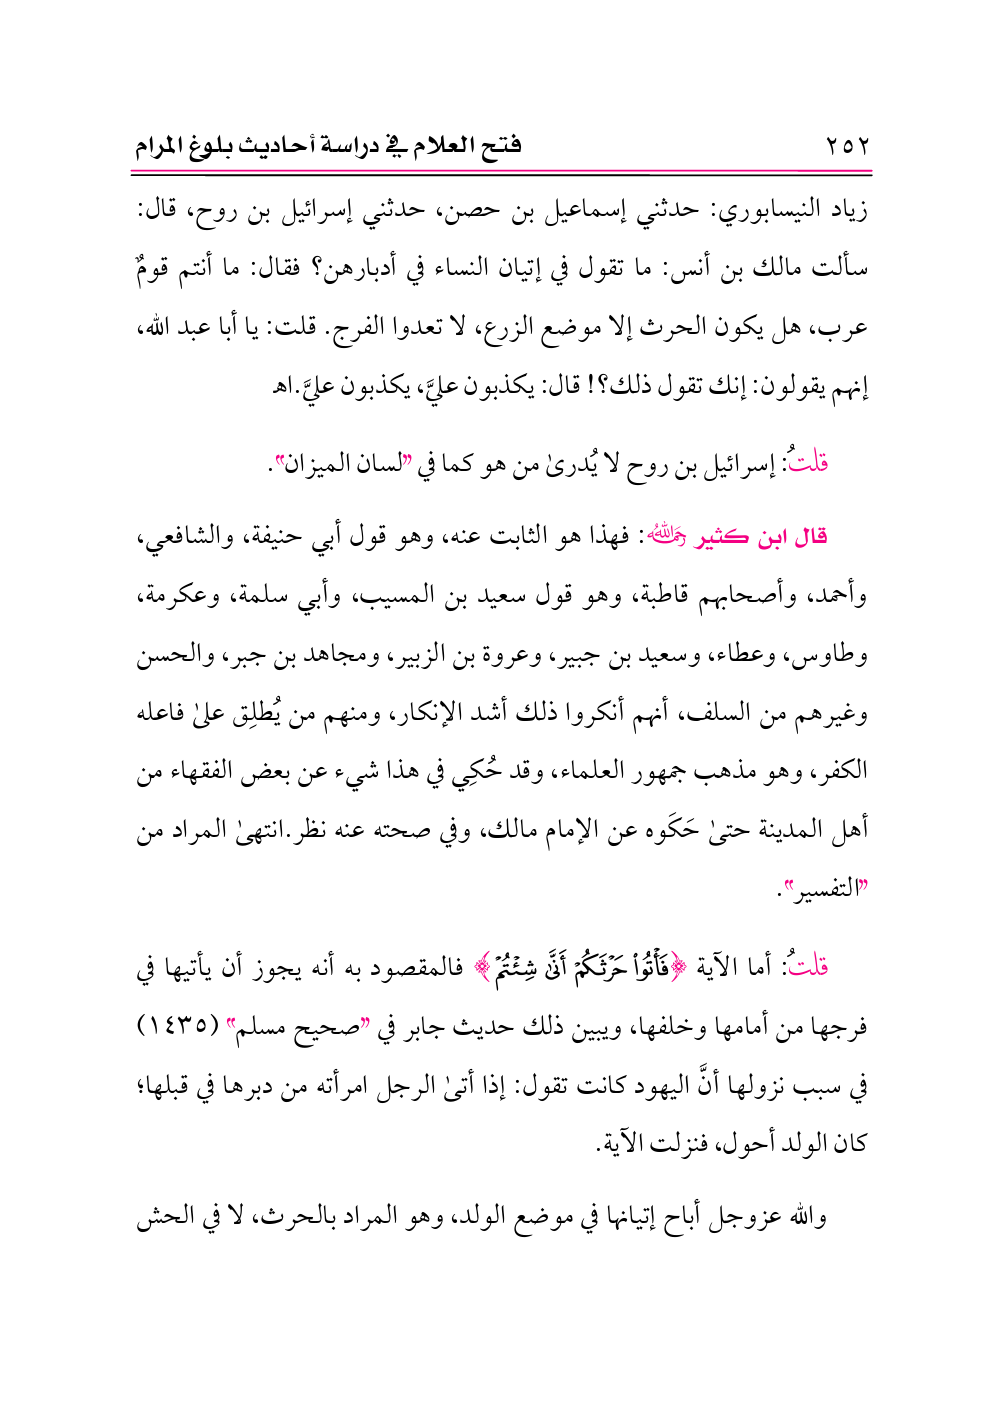 ٢٥٢ فتح العلام في دراسة أحاديث بلوغ المرام
زياد النيسابوري: حدثني إسماعيل بن حصن، حدثني إسرائيل بن روح، قال:
سألت مالك بن أنس: ما تقول في إتيان النساء في أدبارهن؟ فقال: ما أنتم قومٌ
عرب، هل يكون الحرث إلا موضع الزرع، لا تعدوا الفرج. قلت: يا أبا عبد الله،
إنهم يقولون: إنك تقول ذلك؟! قال: يكذبون عليَّ، يكذبون عليَّ.اهـ
قلتُ: إسرائيل بن روح لا يُدرىٰ من هو كما في "لسان الميزان".
قال ابن كثير رحمه الله: فهذا هو الثابت عنه، وهو قول أبي حنيفة، والشافعي،
وأحمد، وأصحابهم قاطبة، وهو قول سعيد بن المسيب، وأبي سلمة، وعكرمة،
وطاوس، وعطاء، وسعيد بن جبير، وعروة بن الزبير، ومجاهد بن جبر، والحسن
وغيرهم من السلف، أنهم أنكروا ذلك أشد الإنكار، ومنهم من يُطلِق علىٰ فاعله
الكفر، وهو مذهب جمهور العلماء، وقد حُكِي في هذا شيء عن بعض الفقهاء من
أهل المدينة حتىٰ حَكَوه عن الإمام مالك، وفي صحته عنه نظر.انتهىٰ المراد من
"التفسير".
قلتُ: أما الآية ﴿فَأْتُوا۟ حَرْثَكُمْ أَنَّىٰ شِئْتُمْ﴾ فالمقصود به أنه يجوز أن يأتيها في
فرجها من أمامها وخلفها، ويبين ذلك حديث جابر في "صحيح مسلم" (١٤٣٥)
في سبب نزولها أنَّ اليهود كانت تقول: إذا أتىٰ الرجل امرأته من دبرها في قبلها؛
كان الولد أحول، فنزلت الآية.
والله عزوجل أباح إتيانها في موضع الولد، وهو المراد بالحرث، لا في الحش